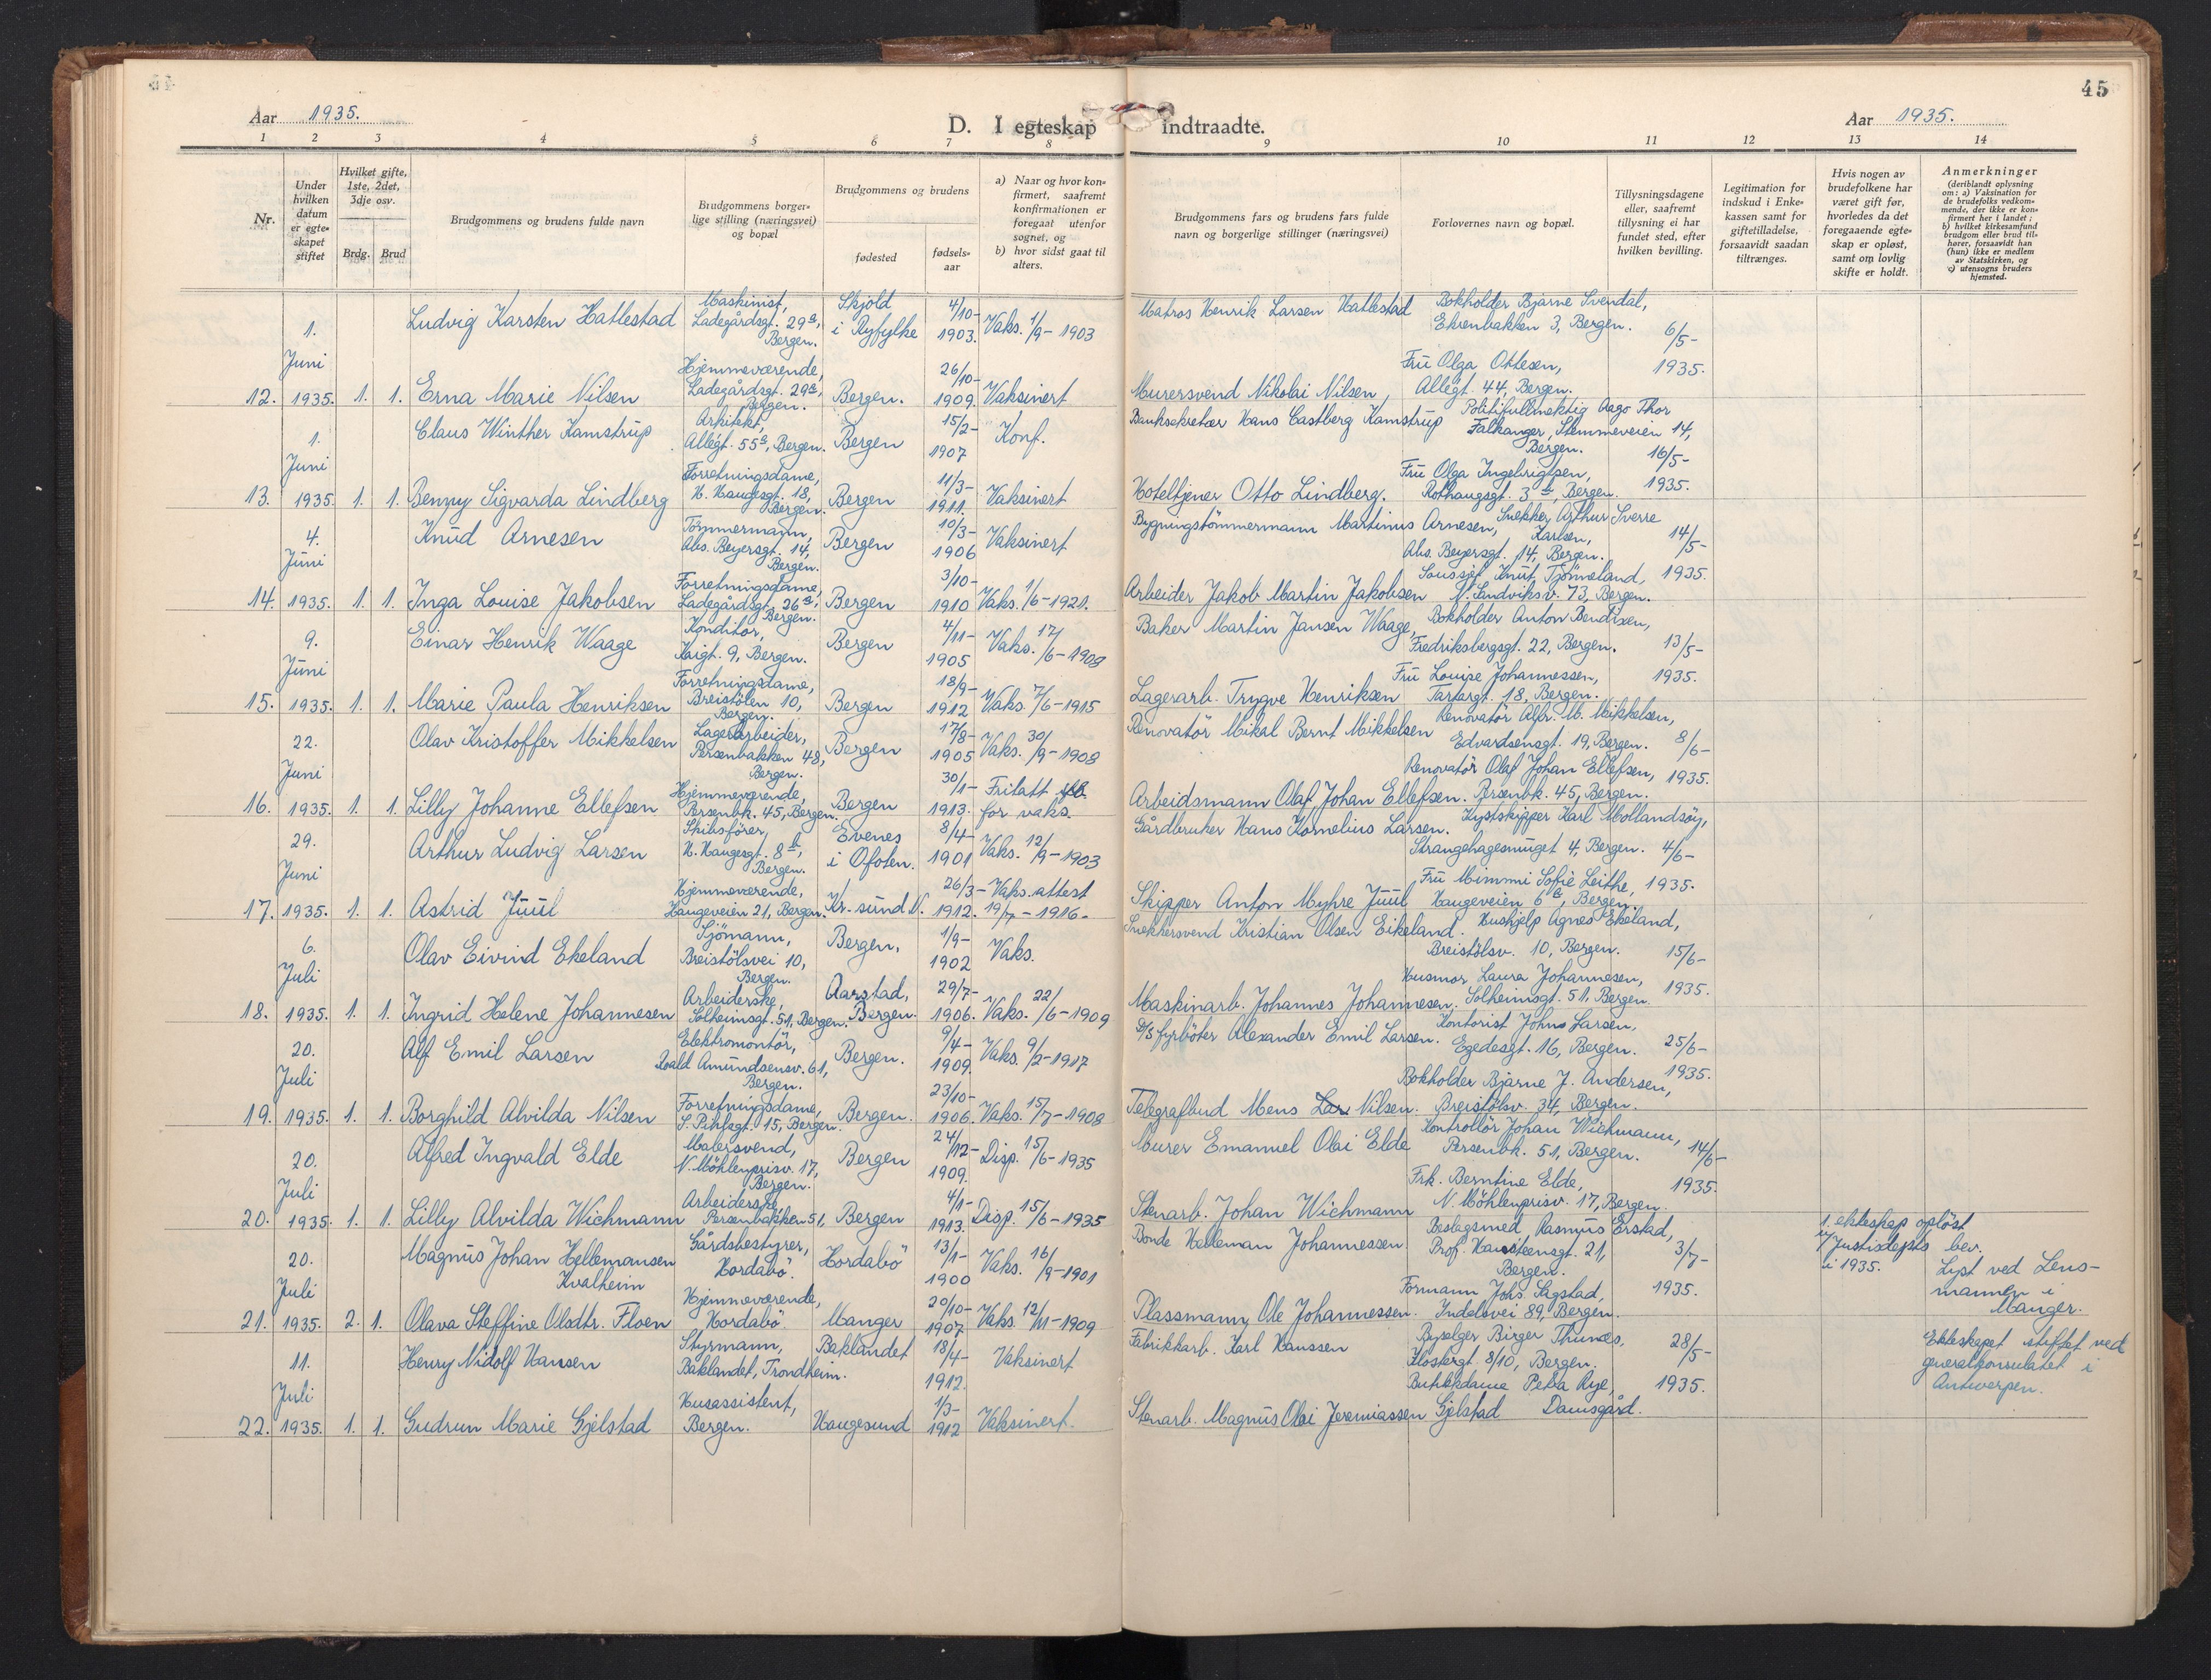 45
Aar 1935.
D. I egteskap indtraadte.
Aar 1935.
1 2 3 4 5 6 7 8 9 10 11 12 13 14
Nr.
Under hvilken datum er egteskapet stiftet
Hvilket gifte, 1ste, 2det, 3dje osv.
Brdg. Brud
Brudgommens og brudens fulde navn
Brudgommens borgerlige stilling (næringsvei) og bopæl
Brudgommens og brudens
fødested
fødselsaar
a) Naar og hvor konfirmert, saafremt konfirmationen er foregaat utenfor sognet, og
b) hvor sidst gaat til alters.
Brudgommens fars og brudens fars fulde navn og borgerlige stillinger (næringsvei)
Forlovernes navn og bopæl.
Tillysningsdagene eller, saafremt tillysning ei har fundet sted, efter hvilken bevilling.
Legitimation for indskud i Enkekassen samt for giftetilladelse, forsaavidt saadan tiltrænges.
Hvis nogen av brudefolkene har været gift før, hvorledes da det foregaaende egteskap er opløst, samt om lovlig skifte er holdt.
Anmerkninger
(deriblandt oplysning om: a) Vaksination for de brudefolks vedkommende, der ikke er konfirmert her i landet; b) hvilket kirkesamfund brudgom eller brud tilhører, forsaavidt han (hun) ikke er medlem av Statskirken, og c) utensogns bruders hjemsted.
12. 1. Juni 1935. 1. 1.
Ludvig Karsten Hatlestad
Maskinist, Ladegårdsgt. 29a, Bergen.
Skjold i Ryfylke
4/10-1903.
Vaks. 1/9-1903
Matros Henrik Larsen Hatlestad
Bokholder Bjarne Svendal, Ekrenbakken 3, Bergen.
6/5-1935.
Erna Marie Nilsen
Hjemmeværende, Ladegårdsgt. 29a, Bergen.
Bergen.
26/10-1909.
Vaksinert
Murersvend Nikolai Nilsen,
Fru Olga Ottesen, Allégt. 44, Bergen.
13. 1. Juni 1935. 1. 1.
Claus Winther Kamstrup
Arkitekt, Allégt. 55a, Bergen.
Bergen
15/2-1907
Konf.
Banksekretær Hans Castberg Kamstrup
Politifullmektig Aago Thor Falkanger, Stemmeveien 14, Bergen.
16/5-1935.
Benny Sigvarda Lindberg
Forretningsdame, H. Haugesgt. 18, Bergen.
Bergen
11/3-1911.
Vaksinert
Hoteltjener Otto Lindberg.
Fru Olga Ingebrigtsen, Rothaugsgt. 3b, Bergen.
14. 4. Juni 1935. 1. 1.
Knud Arnesen
Tömmermann, Abs. Beyersgt. 14, Bergen.
Bergen
10/3-1906
Vaksinert
Bygningstömmermann Martinus Arnesen,
Snekker Arthur Sverre Karlsen, Abs. Beyersgt. 14, Bergen.
14/5-1935.
Inga Louise Jakobsen
Forretningsdame, Ladegårdsgt. 26a, Bergen.
Bergen
3/10-1910
Vaks. 1/6-1921.
Arbeider Jakob Martin Jakobsen
Soussjef Knut Tjönneland, N. Sandviksv. 73, Bergen.
15. 9. Juni 1935. 1. 1.
Einar Henrik Waage
Konditor, Kaigt. 9, Bergen.
Bergen
4/11-1905
Vaks. 17/6-1908
Baker Martin Jansen Waage,
Bokholder Anton Bendixen, Fredriksbergsgt. 22, Bergen.
13/5-1935.
Marie Paula Henriksen
Forretningsdame, Breistölen 10, Bergen.
Bergen
18/9-1912
Vaks. 7/6-1915
Lagerarb. Trygve Henriksen
Fru Louise Johannessen, Tartargt. 18, Bergen.
16. 22. Juni 1935. 1. 1.
Olav Kristoffer Mikkelsen
Lagerarbeider, Persenbakken 48, Bergen.
Bergen
17/8-1905
Vaks. 30/9-1908
Renovatör Mikal Bernt Mikkelsen
Renovatör Alfr. M. Mikkelsen, Edvardsensgt. 19, Bergen.
8/6-1935.
Lilly Johanne Ellefsen
Hjemmeværende, Persenbk. 45, Bergen.
Bergen
30/1-1913.
Fritatt for vaks.
Arbeidsmann Olaf Johan Ellefsen.
Renovatör Olaf Johan Ellefsen, Persenbk. 45, Bergen.
17. 29. Juni 1935. 1. 1.
Arthur Ludvig Larsen
Skibsförer, H. Haugesgt. 8b, Bergen.
Evenes i Ofoten.
8/4-1901
Vaks. 12/9-1903
Gårdbruker Hans Kornelius Larsen.
Kystskipper Karl Mollandsöy, Strangehagesmuget 4, Bergen.
4/6-1935.
Astrid Juul
Hjemmeværende, Haugeveien 21, Bergen.
Kr.sund N.
26/3-1912.
Vaks. attest 19/7-1916-
Skipper Anton Myhre Juul
Fru Mimmi Sofie Leithe, Haugeveien 6a, Bergen.
18. 6. Juli 1935. 1. 1.
Olav Eivind Ekeland
Sjömann, Breistölsvei 10, Bergen.
Bergen.
1/9-1902
Vaks.
Snekkersvend Kristian Olsen Eikeland.
Hushjelp Agnes Ekeland, Breistölsv. 10, Bergen.
15/6-1935.
Ingrid Helene Johannesen
Arbeiderske, Solheimsgt. 51, Bergen.
Aarstad, Bergen.
29/7-1906.
Vaks. 22/6-1909
Maskinarb. Johannes Johannesen.
Husmor Laura Johannesen, Solheimsgt. 51, Bergen.
19. 20. Juli 1935. 1. 1.
Alf Emil Larsen
Elektromontör, Roald Amundsensv. 61, Bergen.
Bergen.
9/4-1909.
Vaks. 9/2-1917
D/S fyrböter Alexander Emil Larsen.
Kontorist Johns Larsen, Egedesgt. 16, Bergen.
25/6-1935.
Borghild Alvilda Nilsen
Forretningsdame, S. Pihlsgt. 15, Bergen.
Bergen.
23/10-1906.
Vaks. 15/7-1908
Telegrafbud Mons Lar Nilsen.
Bokholder Bjarne J. Andersen, Breistölsv. 34, Bergen.
20. 20. Juli 1935. 1. 1.
Alfred Ingvald Elde
Malersvend, N. Möhlenprisv. 17, Bergen.
Bergen
24/12-1909.
Disp. 15/6-1935
Murer Emanuel Olai Elde
Kontrollör Johan Wichmann, Persenbk. 51, Bergen.
14/6-1935.
Lilly Alvilda Wichmann
Arbeiderske, Persenbakken 51,
Bergen
4/1-1913.
Disp. 15/6-1935
Stenarb. Johan Wichmann
Frk. Berntine Elde, N. Möhlenprisv. 17, Bergen.
21. 20. Juli 1935. 2. 1.
Magnus Johan Hellemansen Kvalheim
Gårdsbestyrer, Hordabö.
Hordabö
13/1-1900
Vaks. 16/9-1901
Bonde Helleman Johannessen
Beslagsmed Rasmus Erstad, Prof. Hansteensgt. 21, Bergen.
3/7-1935.
1. ekteskap oplöst v/ Justisdepts bev. i 1935.
Lyst ved Lensmannen i Manger.
Olava Steffine Olsdtr. Floen
Hjemmeværende, Hordabö.
Manger
20/10-1907
Vaks. 12/11-1909
Plassmann Ole Johannessen.
Formann Johs. Sagstad, Indalsvei 89, Bergen.
22. 11. Juli 1935. 1. 1.
Henry Nidolf Hansen
Styrmann, Baklandet, Trondheim.
Baklandet
18/4-1912.
Vaksinert
Fabrikkarb. Karl Hanssen
Byselger Birger Thunes, Klostergt. 8/10, Bergen.
28/5-1935.
Ekteskapet stiftet ved generalkonsulatet i Antwerpen.
Gudrun Marie Gjelstad
Husassistent, Bergen.
Haugesund
1/3-1912
Vaksinert.
Stenarb. Magnus Olai Jeremiassen Gjelstad
Butikkdame Petra Rye, Damsgård.